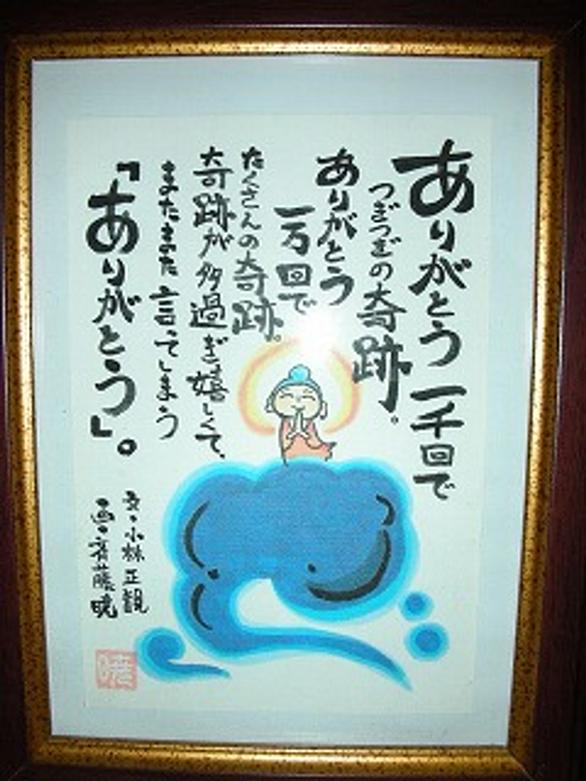 ありがとう一千回で
つぎつぎの奇跡。
ありがとう
一万回で
たくさんの奇跡。
奇跡が多過ぎ嬉しくて、
またまた言ってしまう
「ありがとう」。
文・小林正観
画・斉藤暁